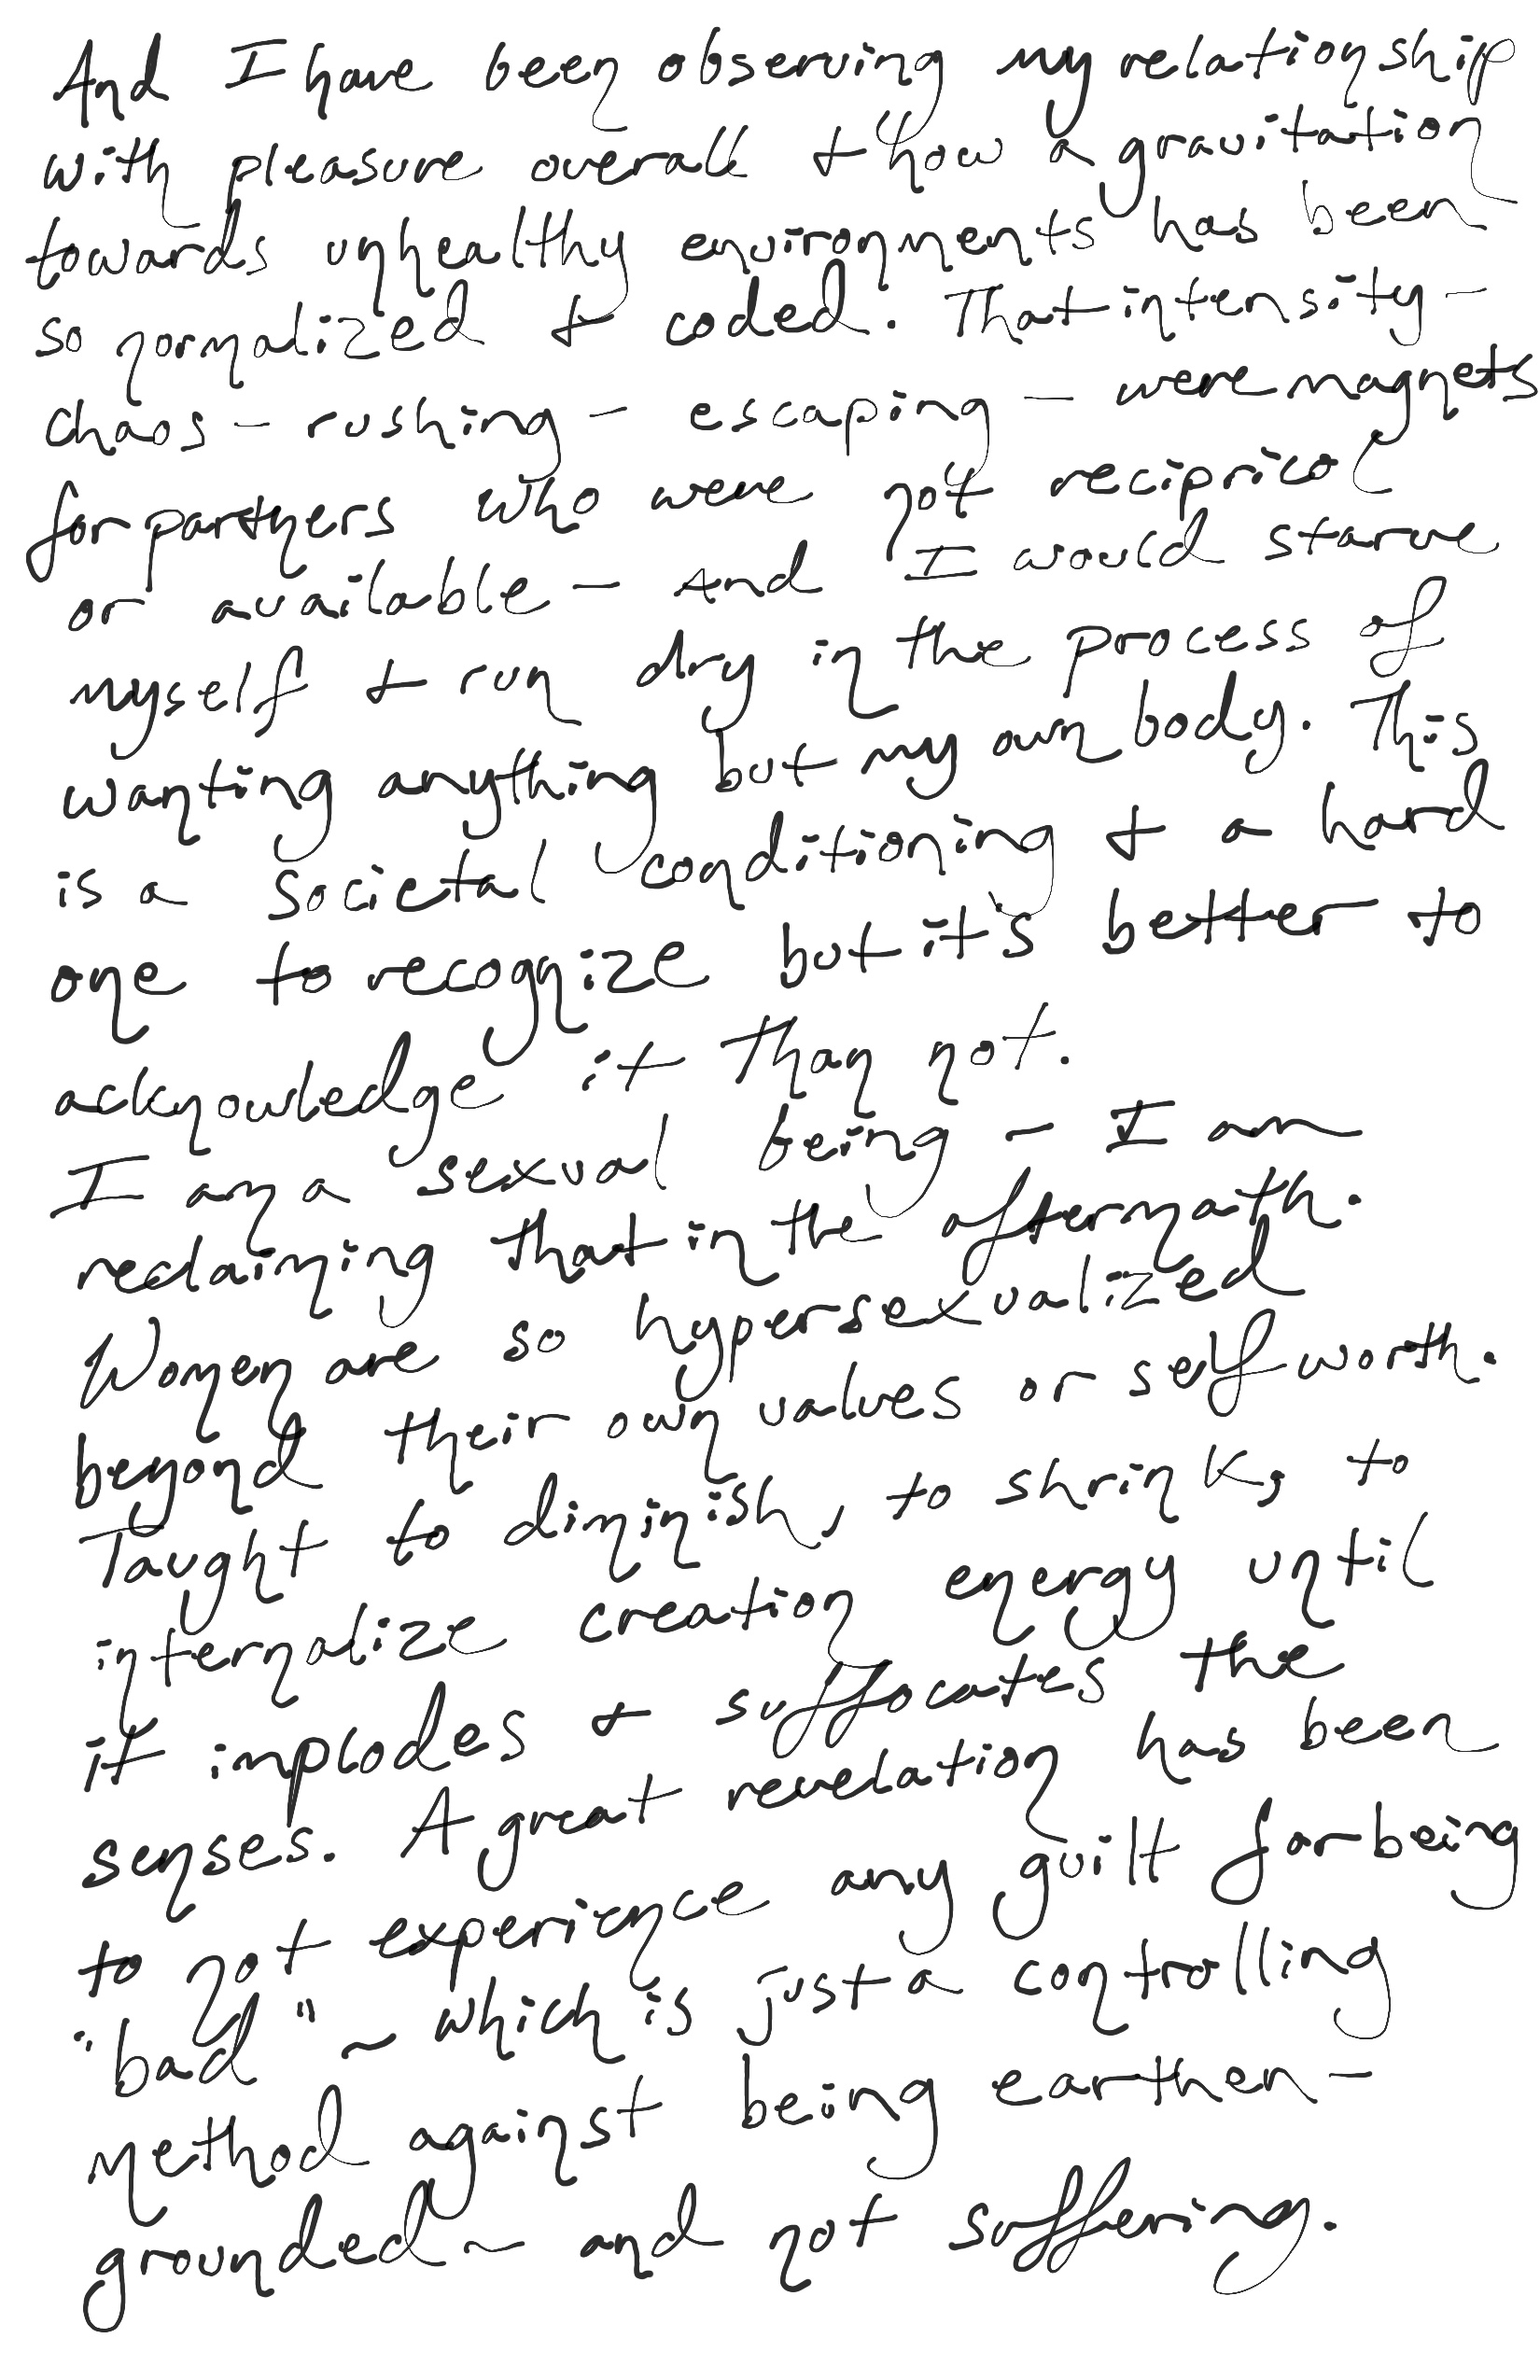 And I have been observing my relationship
with pleasure overall + how a gravitation
towards unhealthy environments has been
so normalized + coded. That intensity -
chaos - rushing - escaping - were magnets
for partners who were not recipricol
or available - And I would starve
myself + run dry in the process of
wanting anything but my own body. This
is a societal conditioning + a hard
one to recognize but it's better to
acknowledge it than not.
I am a sexual being - I am
reclaiming that in the aftermath.
Women are so hypersexualized
beyond their own values or self worth.
Taught to diminish, to shrink, to
internalize creation energy until
it implodes + suffocates the
senses. A great revelation has been
to not experience any guilt for being
"bad" ~ which is just a controlling
method against being earthen -
grounded ~ and not suffering.